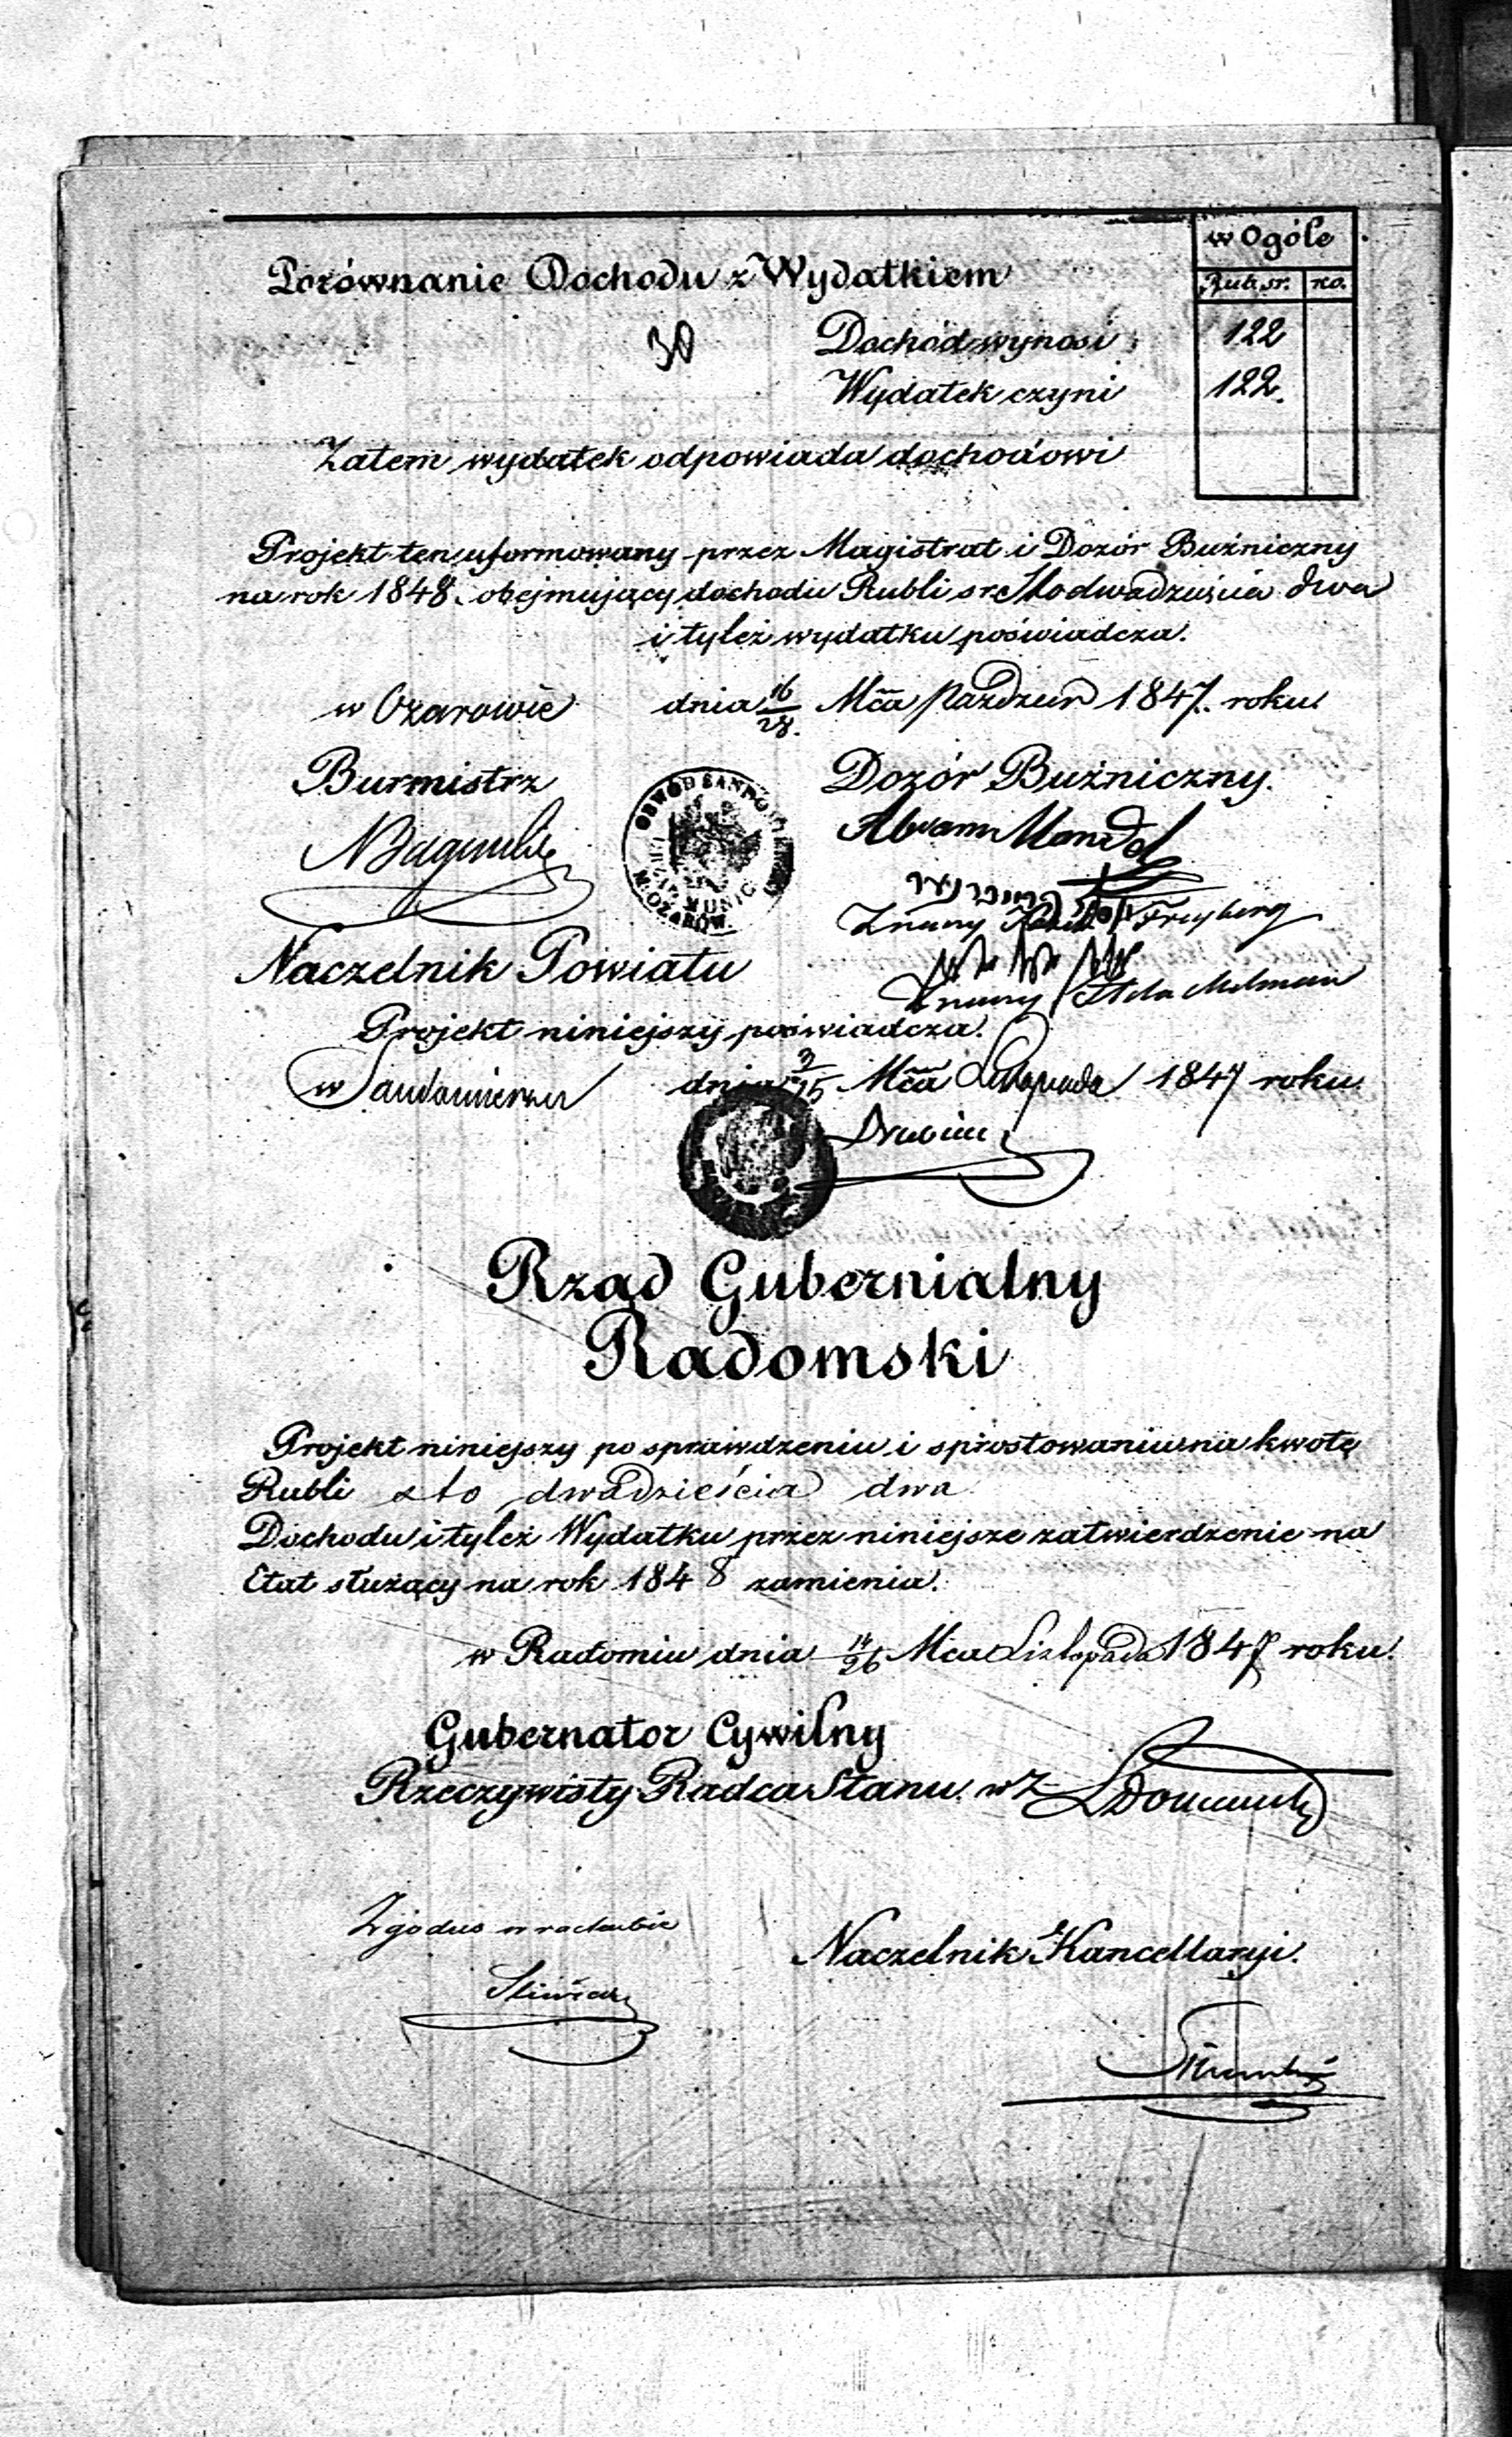 w Ogóle
Rub. sr. ko.
Porównanie Dochodu z Wydatkiem
30
Dochód wynosi 122
Wydatek czyni 122.
Zatem wydatek odpowiada dochodowi
Projekt ten uformowany przez Magistrat i Dozór Bużniczny
na rok 1848. obejmujący dochodu Rubli sr. Sto dwadzieścia dwa
i tyleż wydatku poświadcza.
w Ozarowie dnia 16/28. Mča Pazdzier 1847. roku.
Burmistrz
Dozór Bużniczny.
OBWÓD SANDOMIERSKI
M. OZARÓW.
Abram Mandel
Znany Freyberg
Naczelnik Powiatu
Znany Melman
Projekt niniejszy poświadcza.
w Sandomierzu dnia 3/15 Mča Listopada 1847 roku.
Rząd Gubernialny
Radomski
Projekt niniejszy po sprawdzeniu i sprostowaniu na kwotę
Rubli sto dwadzieścia dwa
Dochodu i tyleż Wydatku przez niniejsze zatwierdzenie na
Etat służący na rok 1848 zamienia.
w Radomiu dnia 14/26 Mca Listopada 1847 roku.
Gubernator Cywilny
Rzeczywisty Radca Stanu. w Z
Zgodno w rachubie
Naczelnik Kancellaryi.